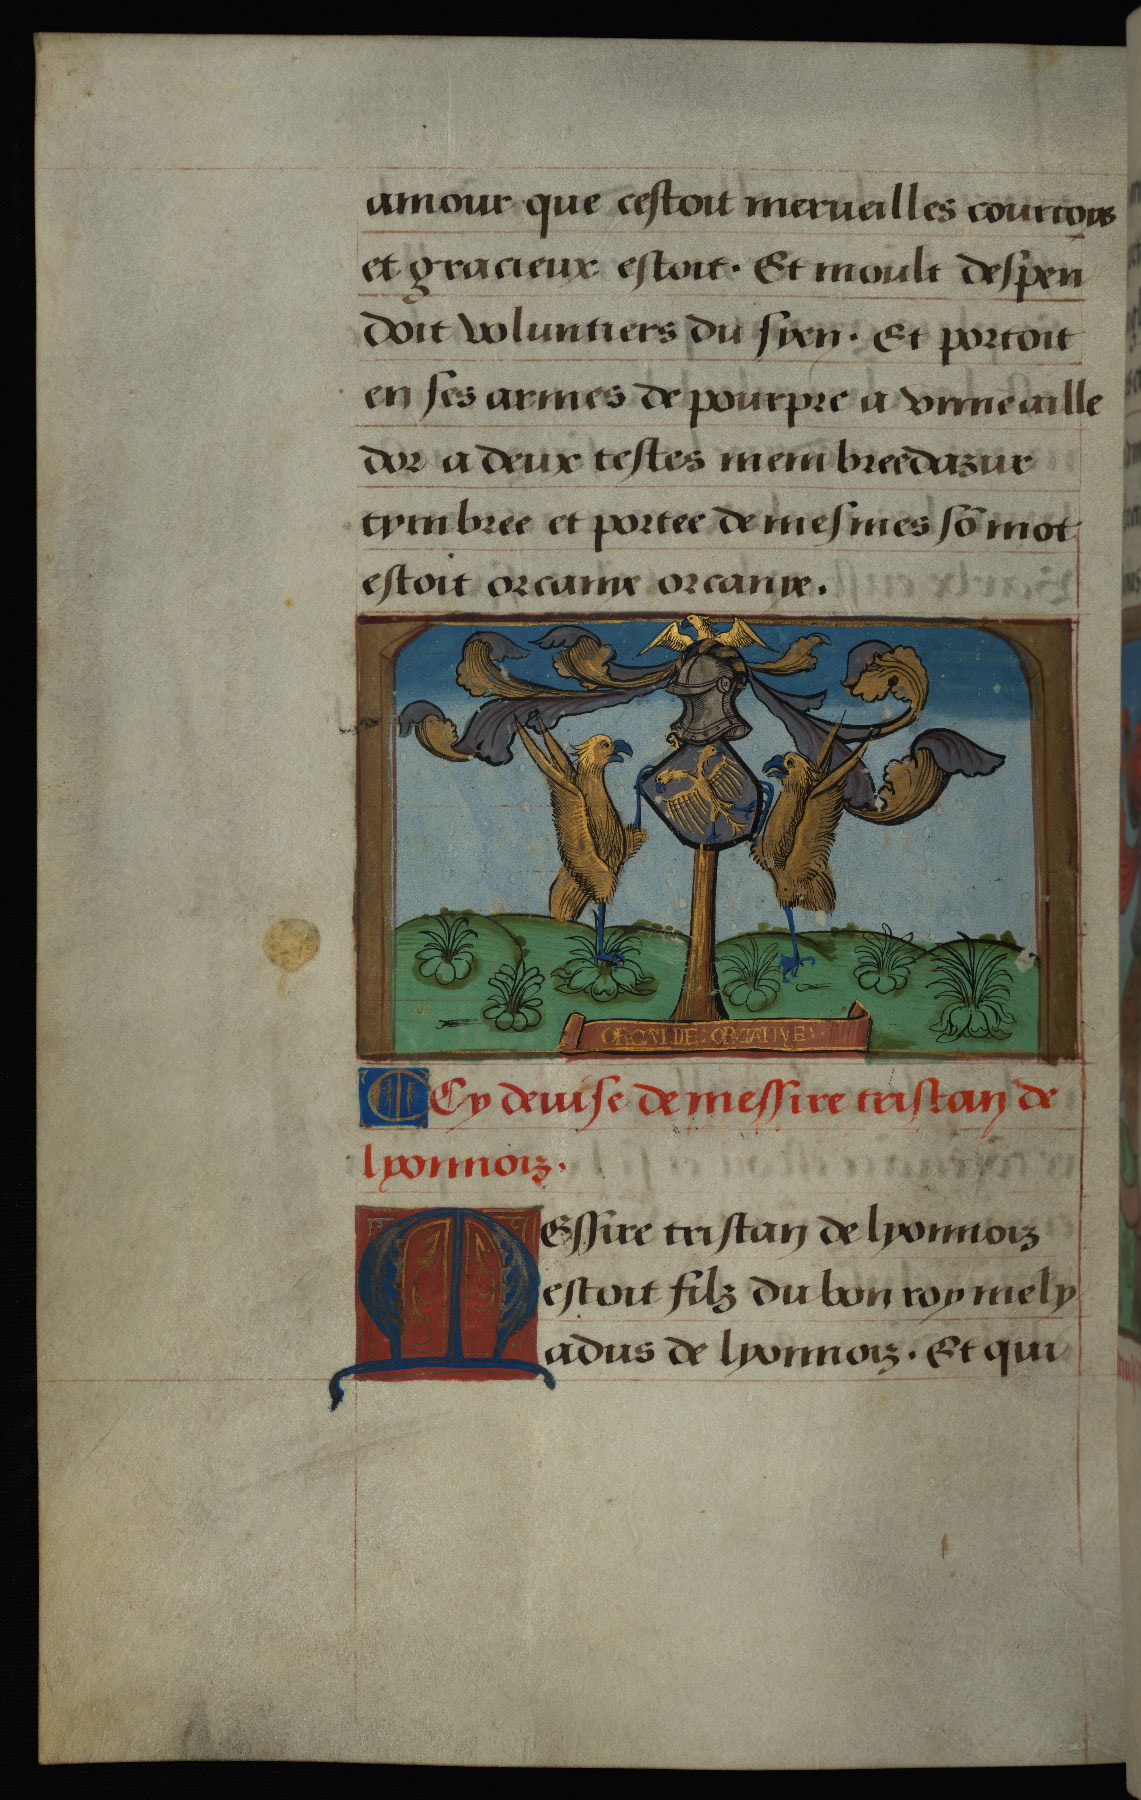 amour que cestoit merueilles courtois
et gracieux estoit. Et moult despen
doit voluntiers du sien. Et portoit
en ses armes de pourpre a vnne aille
dor a deux testes membree dazur
tymbree et portee de mesmes sõ mot
estoit orcanye orcanye.
ORCANIE: ORCANYE:
Cy deuise de messire tristan de
lyonnoiz.
Messire tristan de lyonnoiz
estoit filz du bon roy mely
adus de lyonnoiz. Et qui